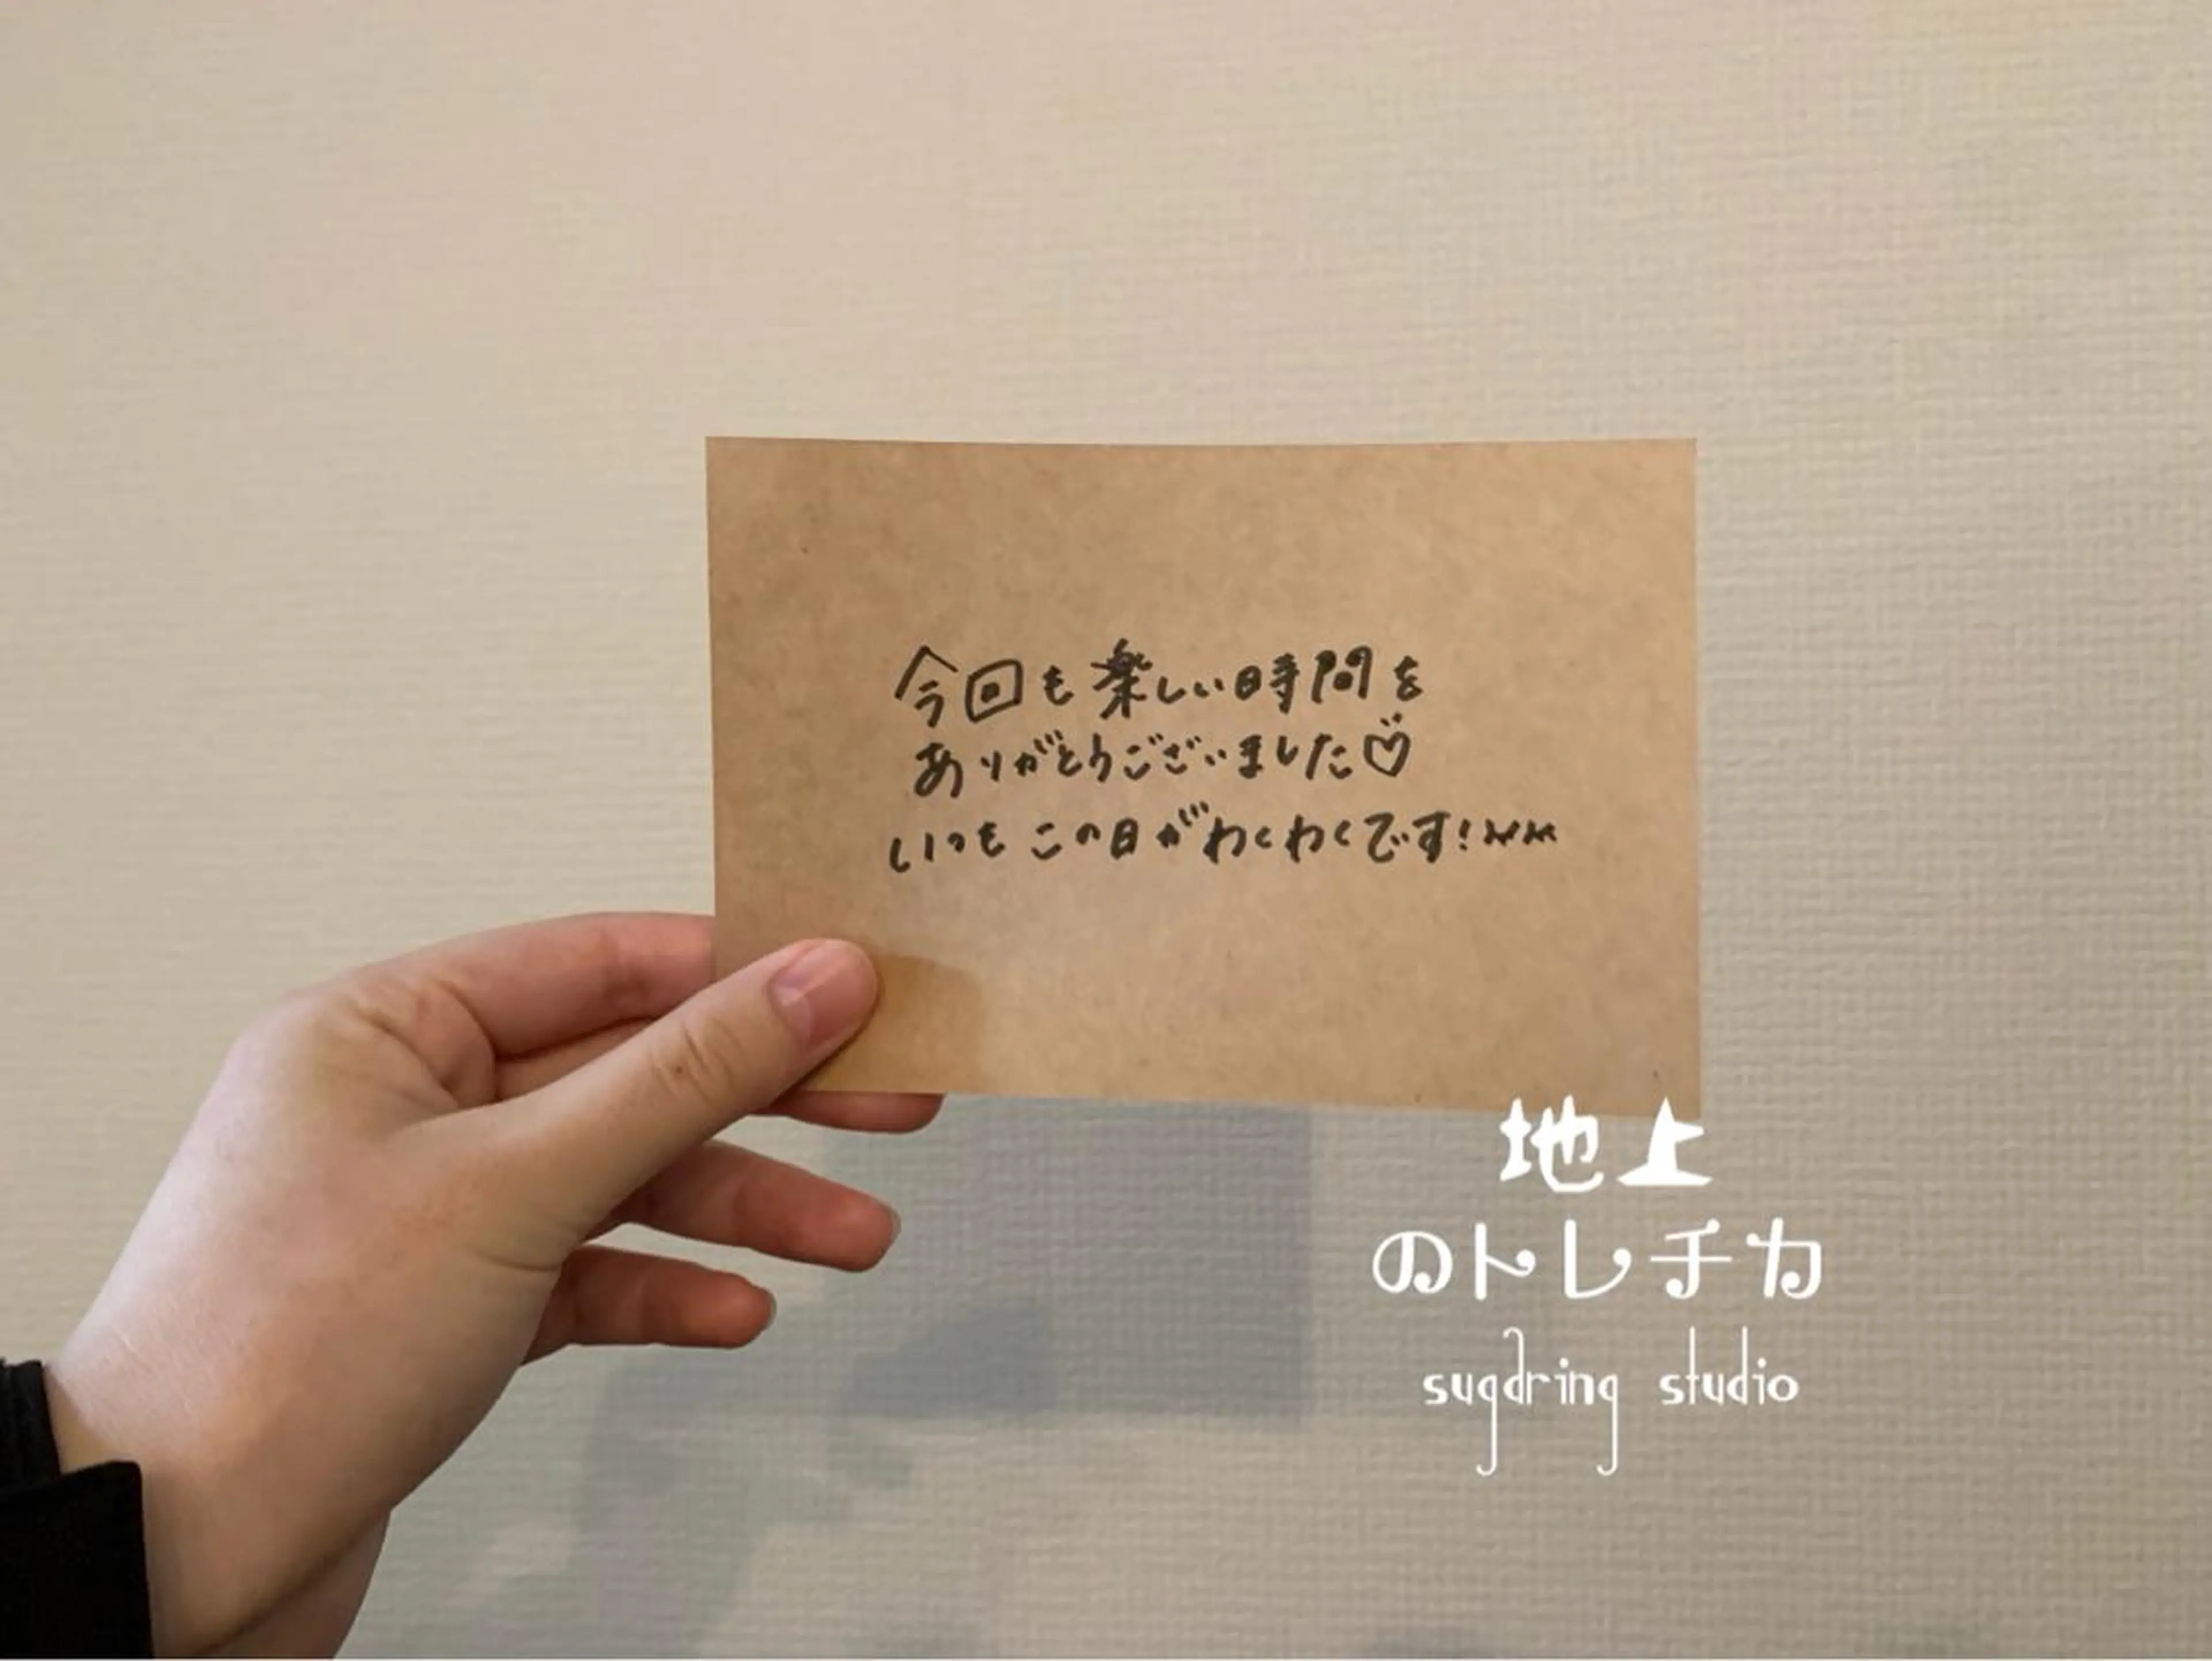 今回も楽しい時間を
ありがとうございました♡
いつもこの日がわくわくです!ww
地上
のトレチカ
sugdring studio